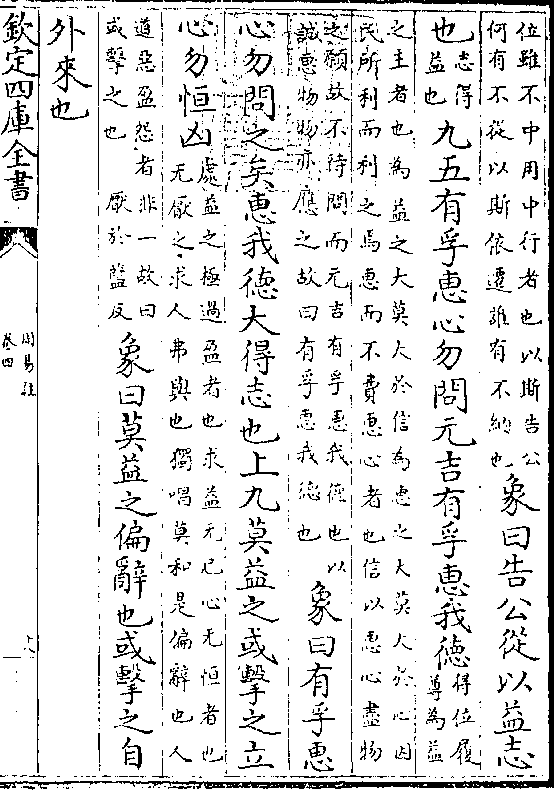 位雖不中用中行者也以斯告公
何有不從以斯依遷誰有不納也
象曰告公從以益志
也
志得
益也
九五有孚惠心勿問元吉有孚惠我德
得位履
尊為益
之主者也為益之大莫大於信為惠之大莫大於心因
民所利而利之焉惠而不費惠心者也信以惠心盡物
之願故不待問而元吉有孚惠我德也以
誠惠物物亦應之故曰有孚惠我德也
象曰有孚惠
心勿問之矣惠我德大得志也上九莫益之或擊之立
心勿恒凶
處益之極過盈者也求益无已心无恒者也
无厭之求人弗與也獨唱莫和是偏辭也人
道惡盈怨者非一故曰
或擊之也 厭於鹽反
象曰莫益之偏辭也或擊之自
外來也
欽定四庫全書
周易註
卷四
十八